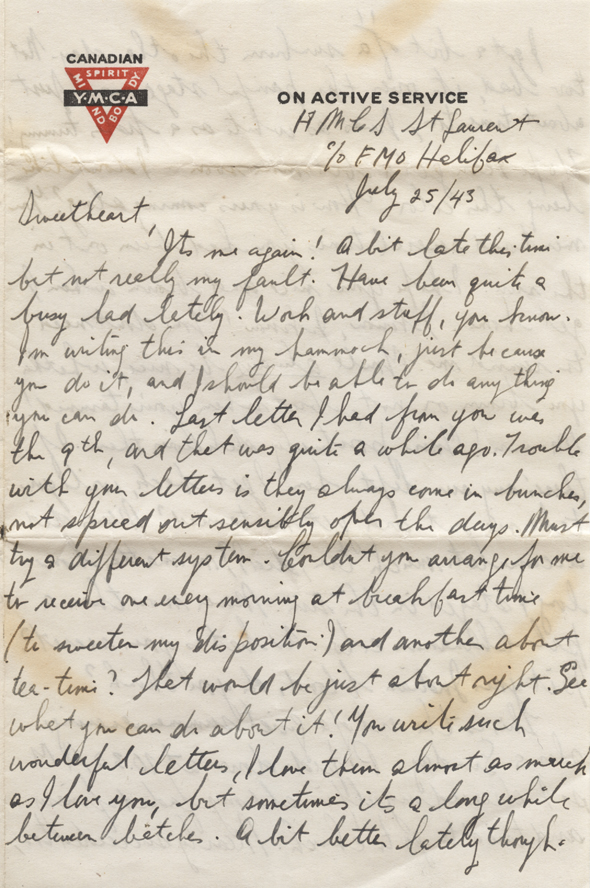 CANADIAN
SPIRIT
MIND
BODY
Y·M·C·A
ON ACTIVE SERVICE
H M C S St Laurent
c/o F M O Halifax
July 25/43
Sweetheart,
Its me again! A bit late this time
but not really my fault. Have been quite a
busy lad lately. Work and stuff, you know.
I'm writing this in my hammock, just because
you do it, and I should be able to do any thing
you can do. Last letter I had from you was
the 9th, and that was quite a while ago. Trouble
with your letters is they always come in bunches,
not spread out sensibly over the days. Must
try a different system. Couldnt you arrange for me
to receive one every morning at breakfast time
(to sweeten my disposition!) and another about
tea-time? That would be just about right. See
what you can do about it! You write such
wonderful letters, I love them almost as much
as I love you, but sometimes its a long while
between batches. A bit better lately though.